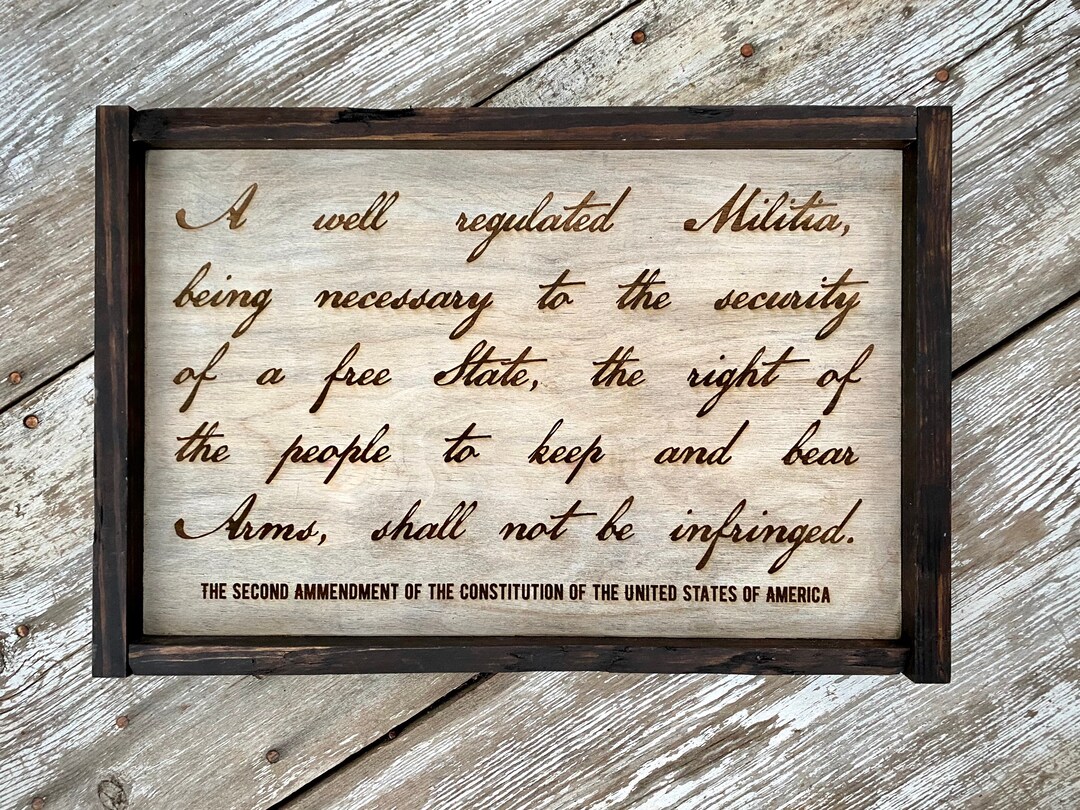 A well regulated Militia,
being necessary to the security
of a free State, the right of
the people to keep and bear
Arms, shall not be infringed.
THE SECOND AMMENDMENT OF THE CONSTITUTION OF THE UNITED STATES OF AMERICA